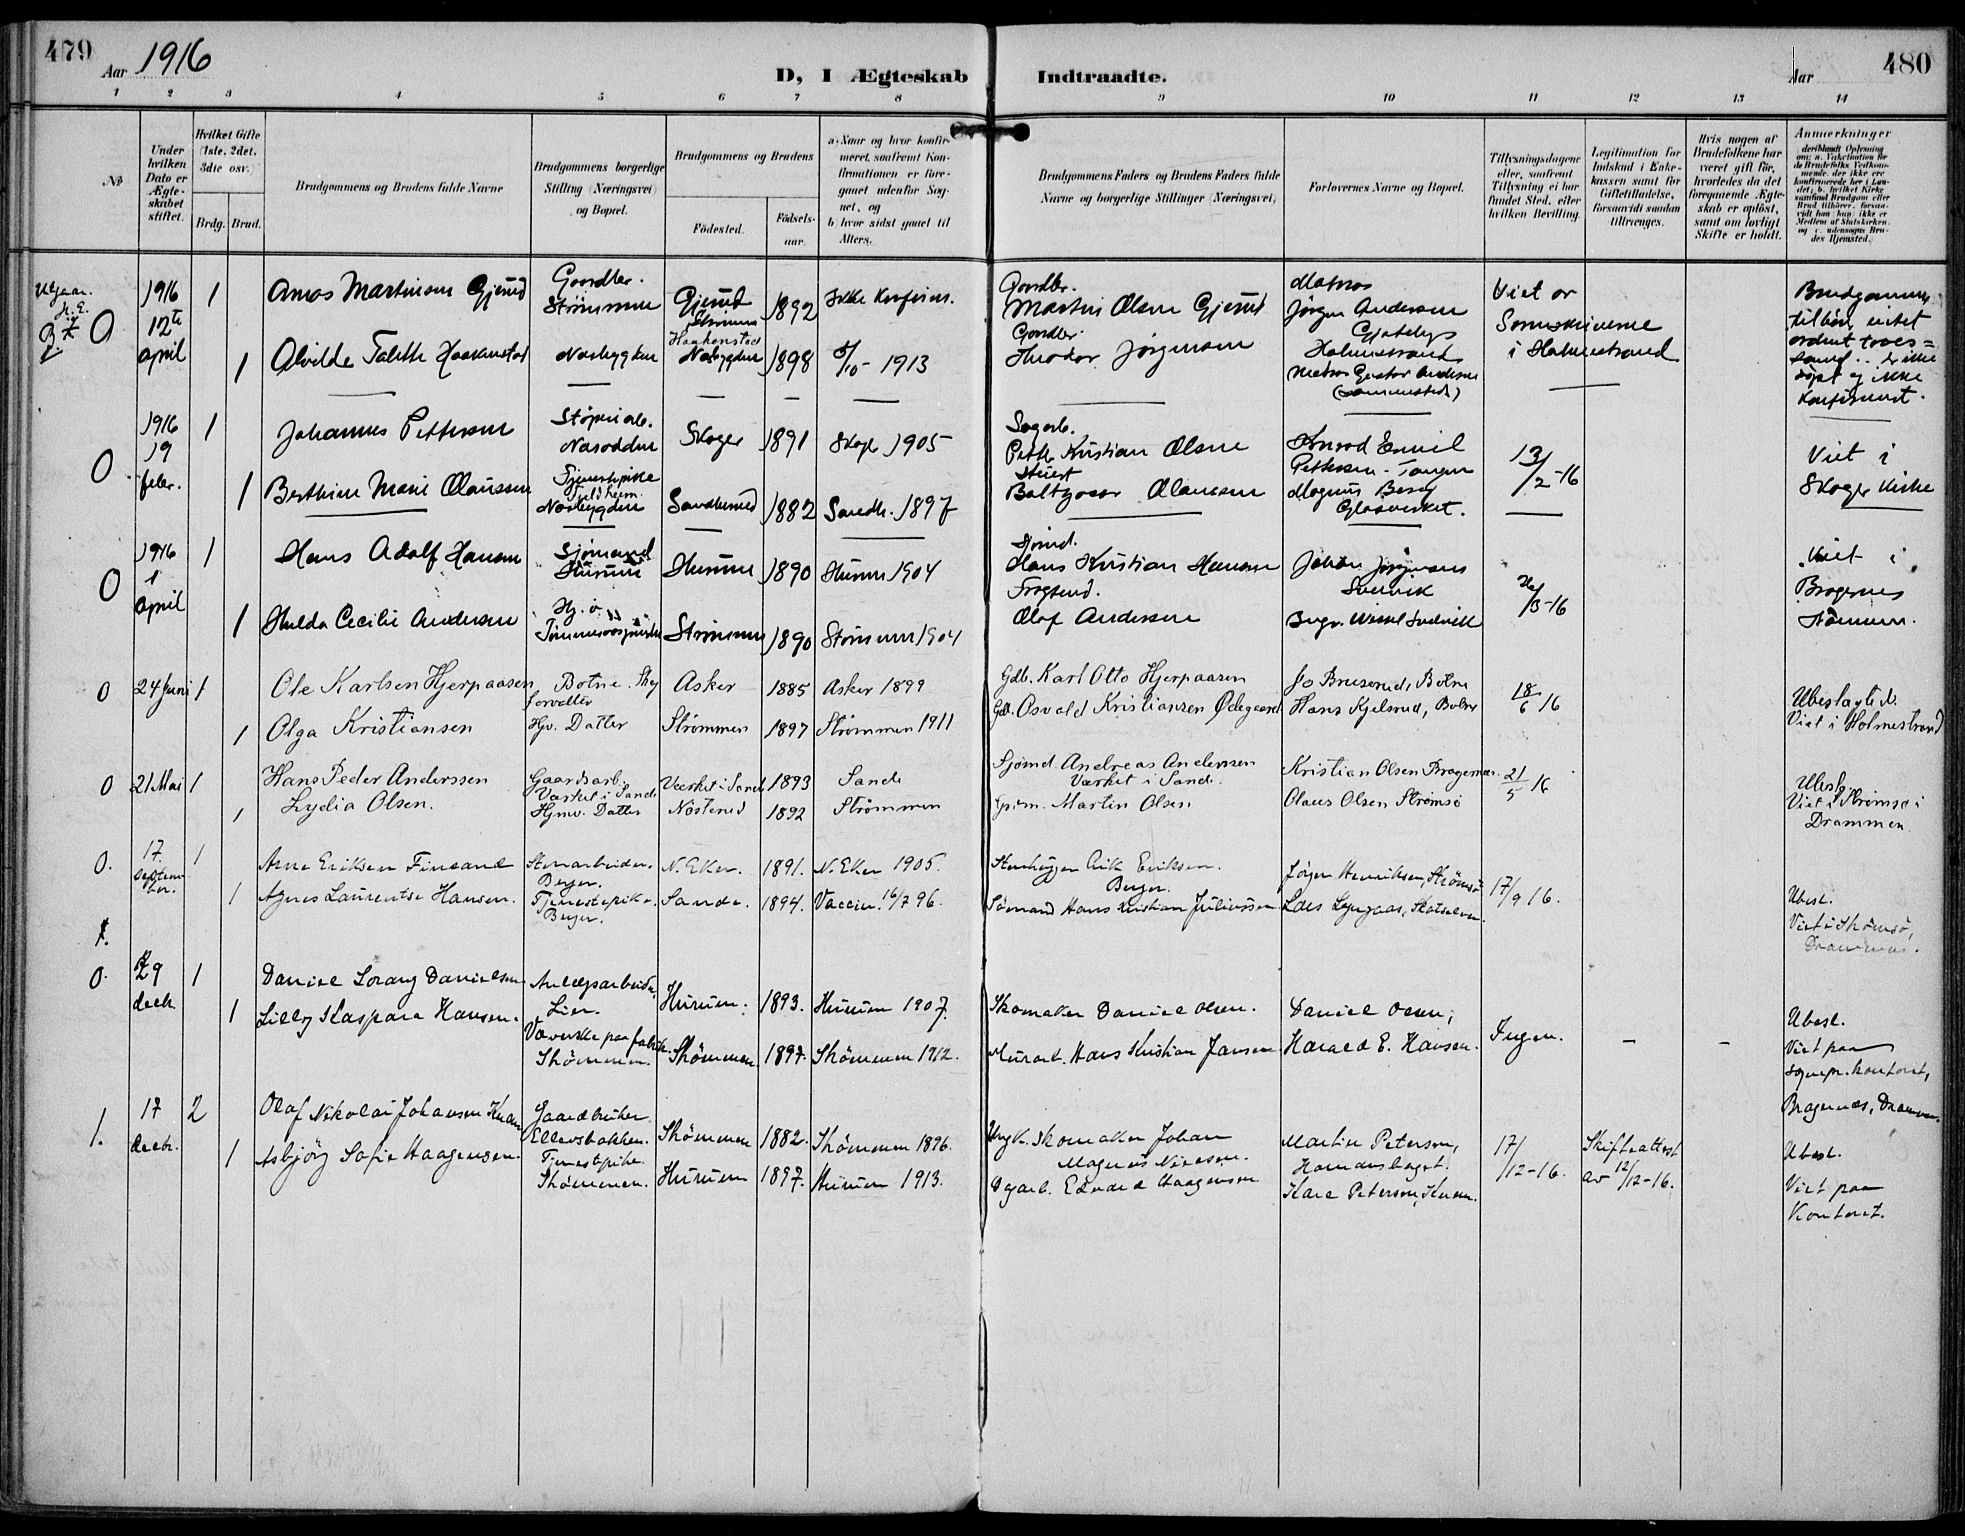 479
Aar 1916
D, I Ægteskab Indtraadte.
Aar
480
1 2 3 4 5 6 7 8 9 10 11 12 13 14
No
Under hvilken Dato er Ægteskabet stiftet.
Hvilket Gifte (1ste, 2det, 3die osv.)
Brdg. Brud.
Brudgommens og Brudens fulde Navne
Brudgommens borgerlige Stilling (Næringsvei) og Bopæl.
Brudgommens og Brudens
Fødested.
Fødselsaar.
a) Naar og hvor konfirmeret, saafremt Konfirmationen er foregaaet udenfor Sognet, og
b) hvor sidst gaaet til Alters.
Brudgommens Faders og Brudens Faders fulde Navne og borgerlige Stillinger (Næringsvei)
Forlovernes Navne og Bopæl.
Tillysningsdagene eller, saafremt Tillysning ei har fundet Sted, efter hvilken Bevilling.
Legitimation for Indskud i Enkekassen samt for Giftetilladelse, forsaavidt saadan tiltrænges.
Hvis nogen af Brudefolkene har været gift før, hvorledes da det foregaaende Ægteskab er opløst, samt om lovligt Skifte er holdt.
Anmerkninger
0 1916 12te april
1 Amos Martinsen Gjerud Gaardbr. Strømmen Gjerud Strømm 1892 Ikke Konfirm. Gaardbr. Martin Olsen Gjerud Matros Jörgen Andersen Viet av Sorenskriverne i Holmestrand
1 Alvilde Talette Haakenstad Nesbygden Haakenstad Nesbygden 1898 5/10 - 1913 Gaardbr. Theodor Jørgensen Holmestrand Matros Gustav Andersen (sammesteds)
Brudgommen tilhører intet ordnet troessamf. Er ikke døpt og ikke konfirmeret.
0 1916 19 febr.
1 Johannes Pettersen Nesodden Skoger 1891 Skoger 1905 Sagarb. Petter Kristian Olsen Konrad Emil Pettersen - Tangen 13/2-16 Viet i Skoger Kirke
1 Berthine Marie Olaussen Tjenestepike Nesbygden Sandherred 1882 Sandh. 1897 Baltzasar Olaussen Magnus Berg Glasverket.
0 1916 1 april
1 Hans Adolf Hansen Sjømand Hurum Hurum 1890 Hurum 1904 Sjømd. Hans Kristian Hansen Johan Jörgensen Svelvik 26/3-16 Viet i Bragernes
1 Hulda Cecilie Andersen Strømmen 1890 Strømmen 1904 Olaf Andersen Svelvik Drammen.
0 24 Juni 1 Ole Karlsen Hjerpaasen Botne. Skogforvalter Asker 1885 Asker 1899 Gdb. Karl Otto Hjerpaasen Jo Bruserud, Botne 18/6 16 Ubeslagted.
1 Olga Kristiansen Hjv. Datter Strømmen 1897 Strømmen 1911 Gdb. Osvald Kristiansen Ødegaard Hans Kjelsrud, Botne Viet i Holmestrand
0 21 Mai 1 Hans Peder Anderssen Gaardsarb. Værket i Sande Værket i Sande 1893 Sande Sjømd. Andreas Anderssen Værket i Sande. Kristian Olsen Bragernes. 21/5 16 Ubesl.
1 Lydia Olsen. Hjmv. Datter Nøsterud 1892 Strømmen Martin Olsen Olaus Olsen Strømsø Viet i Strømsø i Drammen
0. 17. september. 1 Arne Eriksen Finsand Stenarbeider. Berger. N. Eker. 1891. N. Eker 1905. Stenhugger Erik Eriksen. Berger. Jørgen Henriksen, Strømsø 17/9 16. Ubesl.
1 Agnes Laurentse Hansen. Tjenestepike. Berger. Sande. 1894. Vaccin. 16/7 96. Sømand Hans Kristian Juliussen Viet i Strømsø, Drammen.
0. 29 decbr. 1 Daniel Sorang Danielsen Anlægsarbeider, Lier. Hurum. 1893. Hurum 1907. Skomaker Daniel Olsen. Daniel Olsen, Ingen. - - Ubesl.
1 Lilly Kaspara Hansen. Væverske paa fabrik. Strømmen. Strømmen. 1897. Strømmen 1912. Murarb. Hans Kristian Jansen Harald E. Hansen. Viet paa sognepr. kontoret, Bragernes, Drammen.
1. 17 decbr. 2 Olaf Nikolai Johansen Gaardbruker Ellevsbakken. Strømmen 1882. Strømmen 1896. Skomaker Johan Magnus Nielsen. Martin Peterson, 17/12-16. Skifteattest av 12/12-16. Ubesl.
1 Asbjörg Sofie Haagensen. Tjenestpike. Strømmen. Hurum 1897. Hurum 1913. Edvard Haagensen Karl Peterson, Viet paa Kontoret.